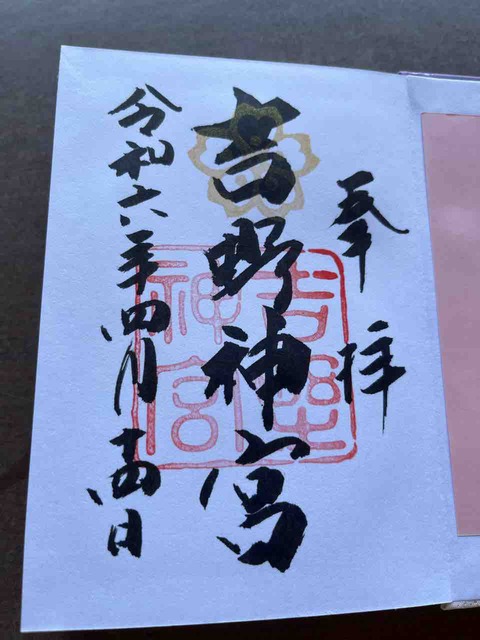 奉拝
吉野神宮
令和六年四月十四日
吉野
神宮